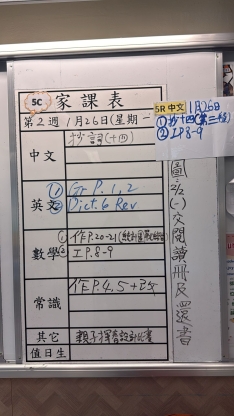 5C 家課表
第2週 1月26日(星期一
中文 抄詞(十四)
英文 ① Gr P.1,2
② Dict.6 Rev
數學 ① 作P.20-21
② 工P.8-9
常識 作P.4,5+改
其它
值日生
5R 中文 1月26日
① 抄十四(第三段)
② 工P.8-9
圖:2/2(一)交閱讀冊及還書